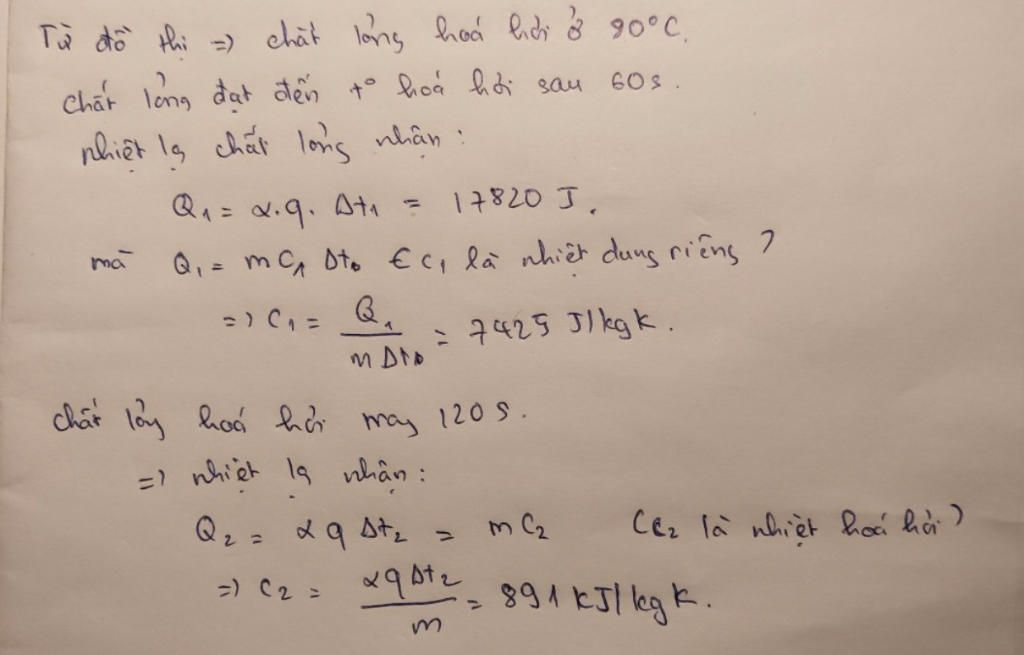 Từ đồ thị => chất lỏng hoá hơi ở 90°C.
chất lỏng đạt đến t° hoá hơi sau 60s.
nhiệt lg chất lỏng nhận:
Q₁ = α.q. Δt₁ = 17820 J.
mà Q₁ = mC₁ Δt₀ (C₁ là nhiệt dung riêng)
=> C₁ = Q₁ / mΔt₀ = 7425 J/kgK.
chất lỏng hoá hơi trong 120s.
=> nhiệt lg nhận:
Q₂ = αqΔt₂ = mC₂ (C₂ là nhiệt hoá hơi)
=> C₂ = αqΔt₂ / m = 891 kJ/kgK.